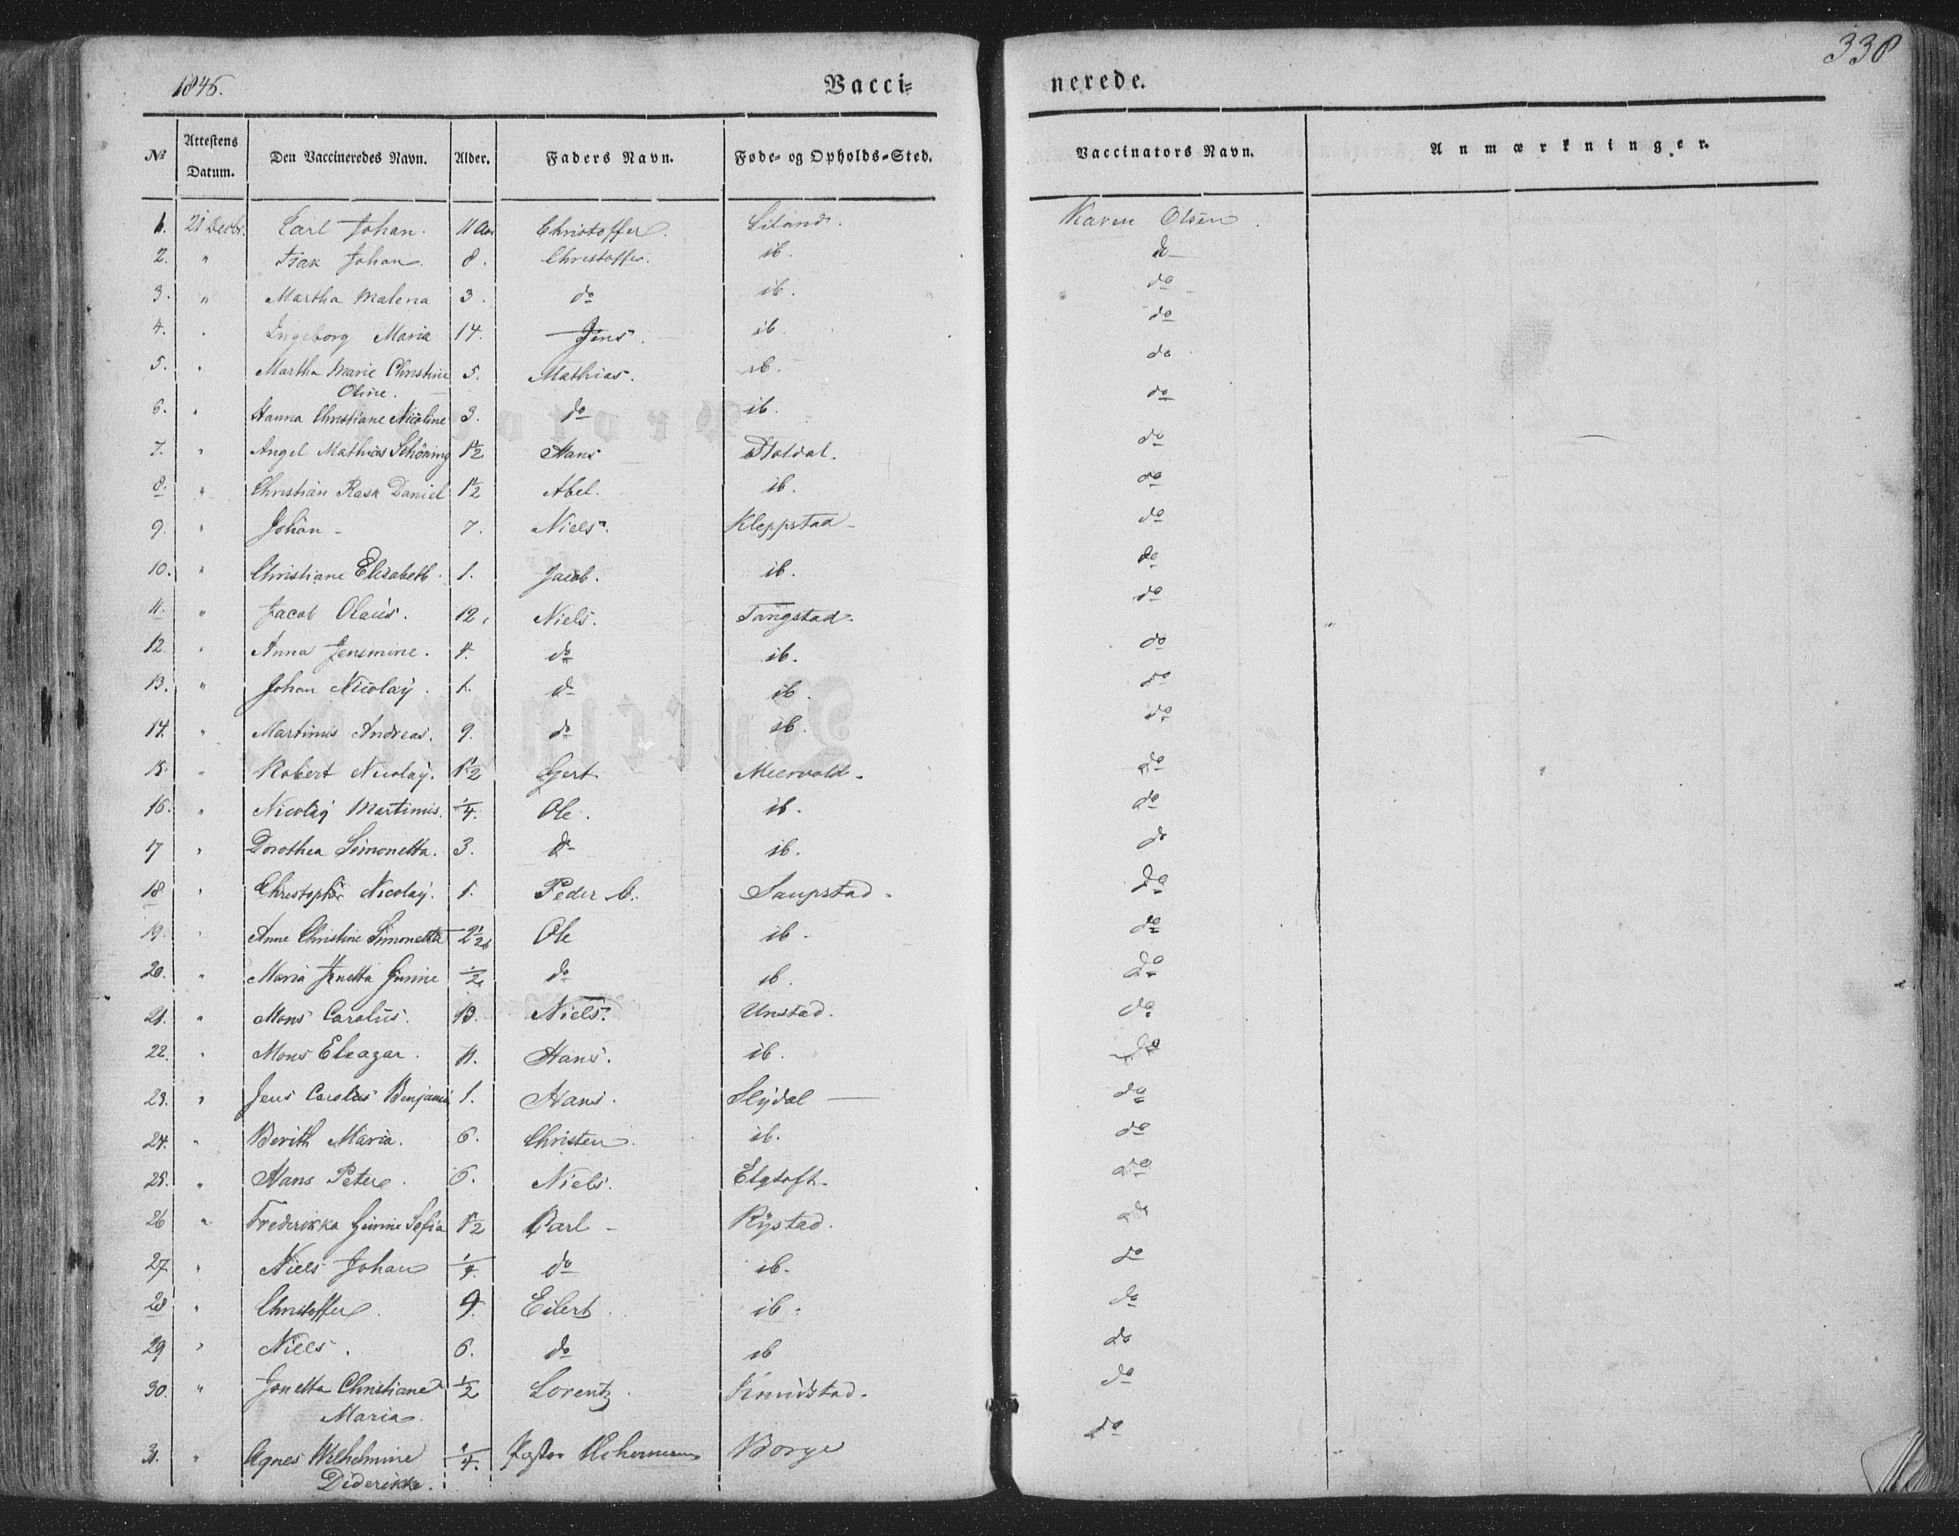 338
1846.
Vacci= nerede.
No Attestens Datum. Den Vaccineredes Navn. Alder. Faders Navn. Føde- og Opholds-Sted. Vaccinators Navn. Anmærkninger.
1. 21 Decbr. Carl Johan. 11 Christoffer. Eiland. Karen Olsen.
2. " Isak Johan. 8. Christoffer. ib. do
3. " Martha Malena 3. do ib. do
4. " Ingeborg Maria 14. Jens. ib. do
5. " Martha Marie Christine 5. Mathias. ib. do
Oline.
6. " Hanna Christiane Nicoline 3. do ib. do
7. " Angel Mathias Schöning 1½ Hans Holdal. do
8. " Christian Rask Daniel 1½ Abel. ib. do
9. " Johan - 7. Niels. Kleppstad - do
10. " Christiane Elisabeth. 1. Jacob. ib. do
11. " Jacob Olaus. 12. Niels. Tangstad. do
12. " Anna Jensmine. 4. do ib. do
13. " Johan Nicolay. 1. do ib. do
14. " Martinus Andreas. 9. do ib. do
15. " Robert Nicolay. 1½ Gert Meervold. do
16. " Nicolay Martinus. ¼. Ole. ib. do
17 " Dorothea Simonetta. 3. do ib. do
18 " Christopher Nicolay. 1. Peder C. Saupstad. do
19. " Anne Christine Simonetta 2½ Ole ib. do
20. " Maria Jenetta Gunine ½ do ib. do
21. " Mons Carolus. 13. Niels. Unstad. do
22. " Mons Eleazar. 11. Hans. ib. do
23. " Jens Carolus Benjamin 1. Hans. Slydal — do
24. " Berith Maria. 6. Christen. ib. do
25. " Hans Peter. 6. Niels. Elgtoft. do
26 " Frederikka Gunine Sofia 1½ Carl - Rystad. do
27 " Niels Johan ¼. do ib. do
28. " Christoffer. 9. Eilert. ib. do
29 " Niels. 6. do ib do
30. " Jonetta Christiane ½ Lorentz. Knudstad. do
Maria.
31. " Agnes Wilhelmine ¼. Pastor Borge do
Diderikke.